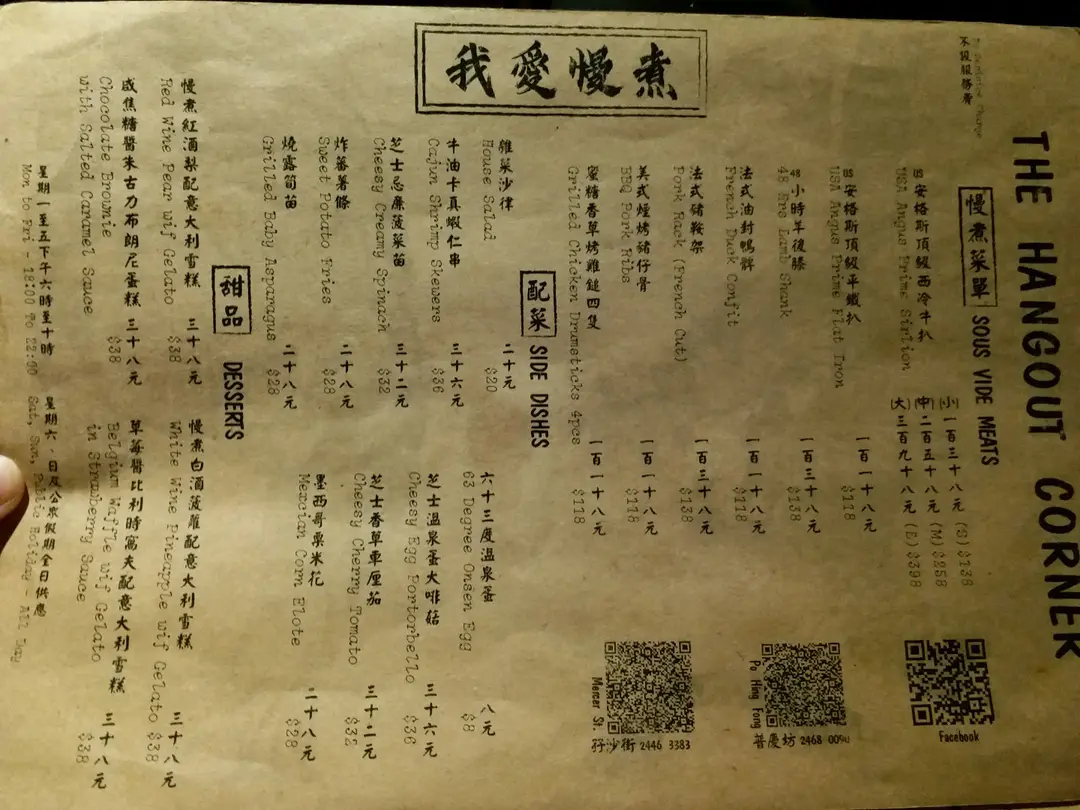 THE HANGOUT CORNER
不設服務費
我愛慢煮
慢煮菜單 SOUS VIDE MEATS
US安格斯頂級西冷牛扒
USA Angus Prime Sirlion
(小)一百三十八元 (S) $138
(中)二百五十八元 (M) $258
(大)三百九十八元 (B) $398
US安格斯頂級半鐵扒 一百一十八元
USA Angus Prime Flat Iron $118
48小時羊後膝 一百三十八元
48 Hrs Lamb Shank $138
法式油封鴨髀 一百一十八元
French Duck Confit $118
法式豬鞍架 一百三十八元
Pork Rack (French Cut) $138
美式煙烤豬仔骨 一百一十八元
BBQ Pork Ribs $118
蜜糖香草烤雞鎚四隻 一百一十八元
Grilled Chicken Drumsticks 4pcs $118
Facebook
Po Hing Fong
普慶坊 2468
Mercer St.
孖沙街 2446 3383
配菜 SIDE DISHES
雜菜沙律 二十元
House Salad $20
牛油卡真蝦仁串 三十六元
Cajun Shrimp Skewers $36
芝士忌廉菠菜苗 三十二元
Cheesy Creamy Spinach $32
炸蕃薯條 二十八元
Sweet Potato Fries $28
燒露筍苗 二十八元
Grilled Baby Asparagus $28
六十三度溫泉蛋 八元
63 Degree Onsen Egg $8
芝士溫泉蛋大啡菇 三十六元
Cheesy Egg Portorbello $36
芝士香草車厘茄 三十二元
Cheesy Cherry Tomato $32
墨西哥粟米花 二十八元
Mexcian Corn Elote $28
甜品 DESSERTS
慢煮紅酒梨配意大利雪糕 三十八元
Red Wine Pear wif Gelato $38
咸焦糖醬朱古力布朗尼蛋糕 三十八元
Chocolate Brownie $38
with Salted Caramel Sauce
慢煮白酒菠蘿配意大利雪糕 三十八元
White Wine Pineapple wif Gelato $38
草莓醬比利時窩夫配意大利雪糕 三十八元
Belgium Waffle wif Gelato $38
in Strawberry Sauce
星期一至五下午六時至十時 星期六、日及公眾假期全日供應
Mon to Fri - 18:00 To 22:00 Sat, Sun, Public Holiday - All Day